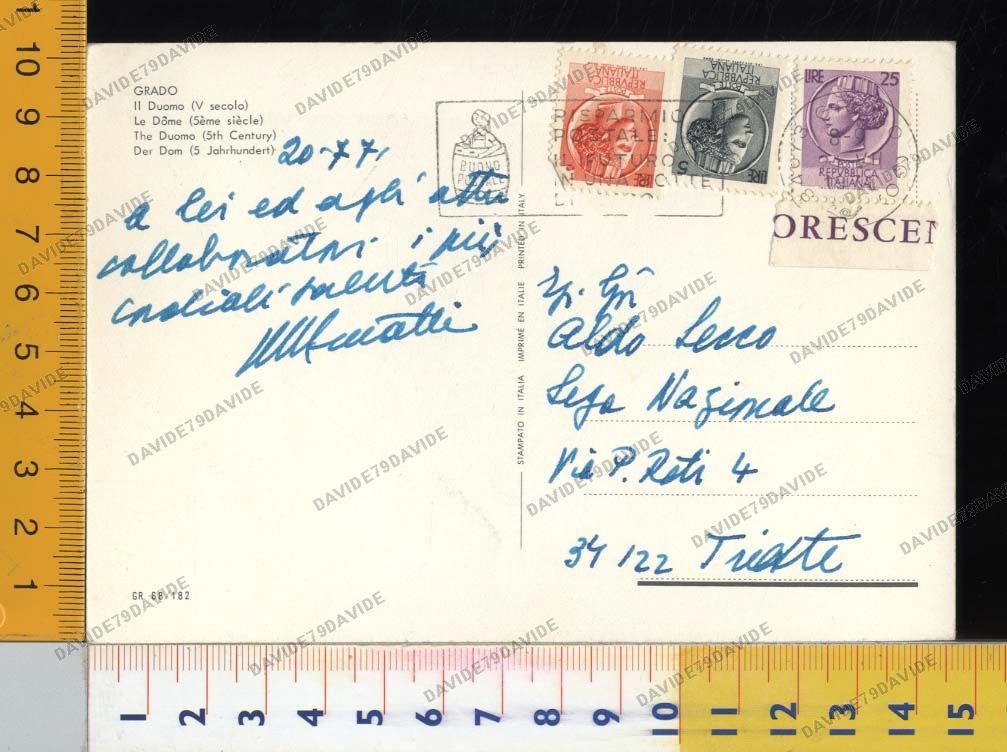 GRADO
Il Duomo (V secolo)
Le Dôme (5ème siècle)
The Duomo (5th Century)
Der Dom (5 Jahrhundert)
20-7-71
a lei ed agli altri
collaboratori i più
cordiali saluti
GR 68-182
STAMPATO IN ITALIA IMPRIMÉ EN ITALIE PRINTED IN ITALY
BUONO
POSTALE
RISPARMIO
POSTALE:
IL FUTURO
IN UNA BOTTE
LIRE
POSTE
REPVBBLICA
ITALIANA
LIRE 5
POSTE
REPVBBLICA
ITALIANA
LIRE 25
POSTE
REPVBBLICA
ITALIANA
ORESCEN
Aldo Secco
Lega Nazionale
Via P. Reti 4
34122 Trieste
DAVIDE79DAVIDE
1 2 3 4 5 6 7 8 9 10 11
1 2 3 4 5 6 7 8 9 10 11 12 13 14 15